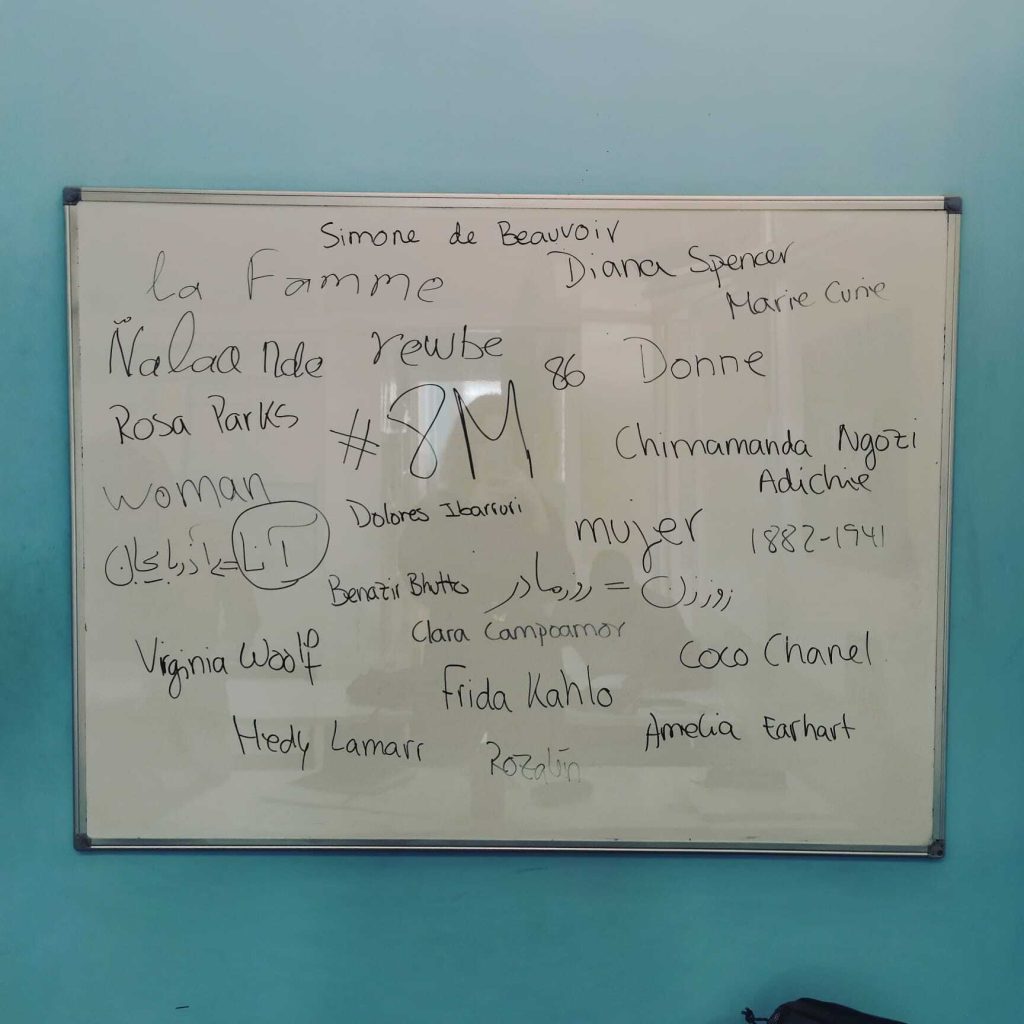 Simone de Beauvoir
La Famme
Diana Spencer
Marie Curie
Ñalao Nde
rewbe
86
Donne
Rosa Parks
#8M
Chimamanda Ngozi
Adichie
woman
Dolores Ibarruri
mujer
1882-1941
آنا = آذربایجان
Benazir Bhutto
روز زن = روز مادر
Clara Campoamor
Virginia Woolf
Coco Chanel
Frida Kahlo
Hedy Lamarr
Amelia Earhart
Rozalín